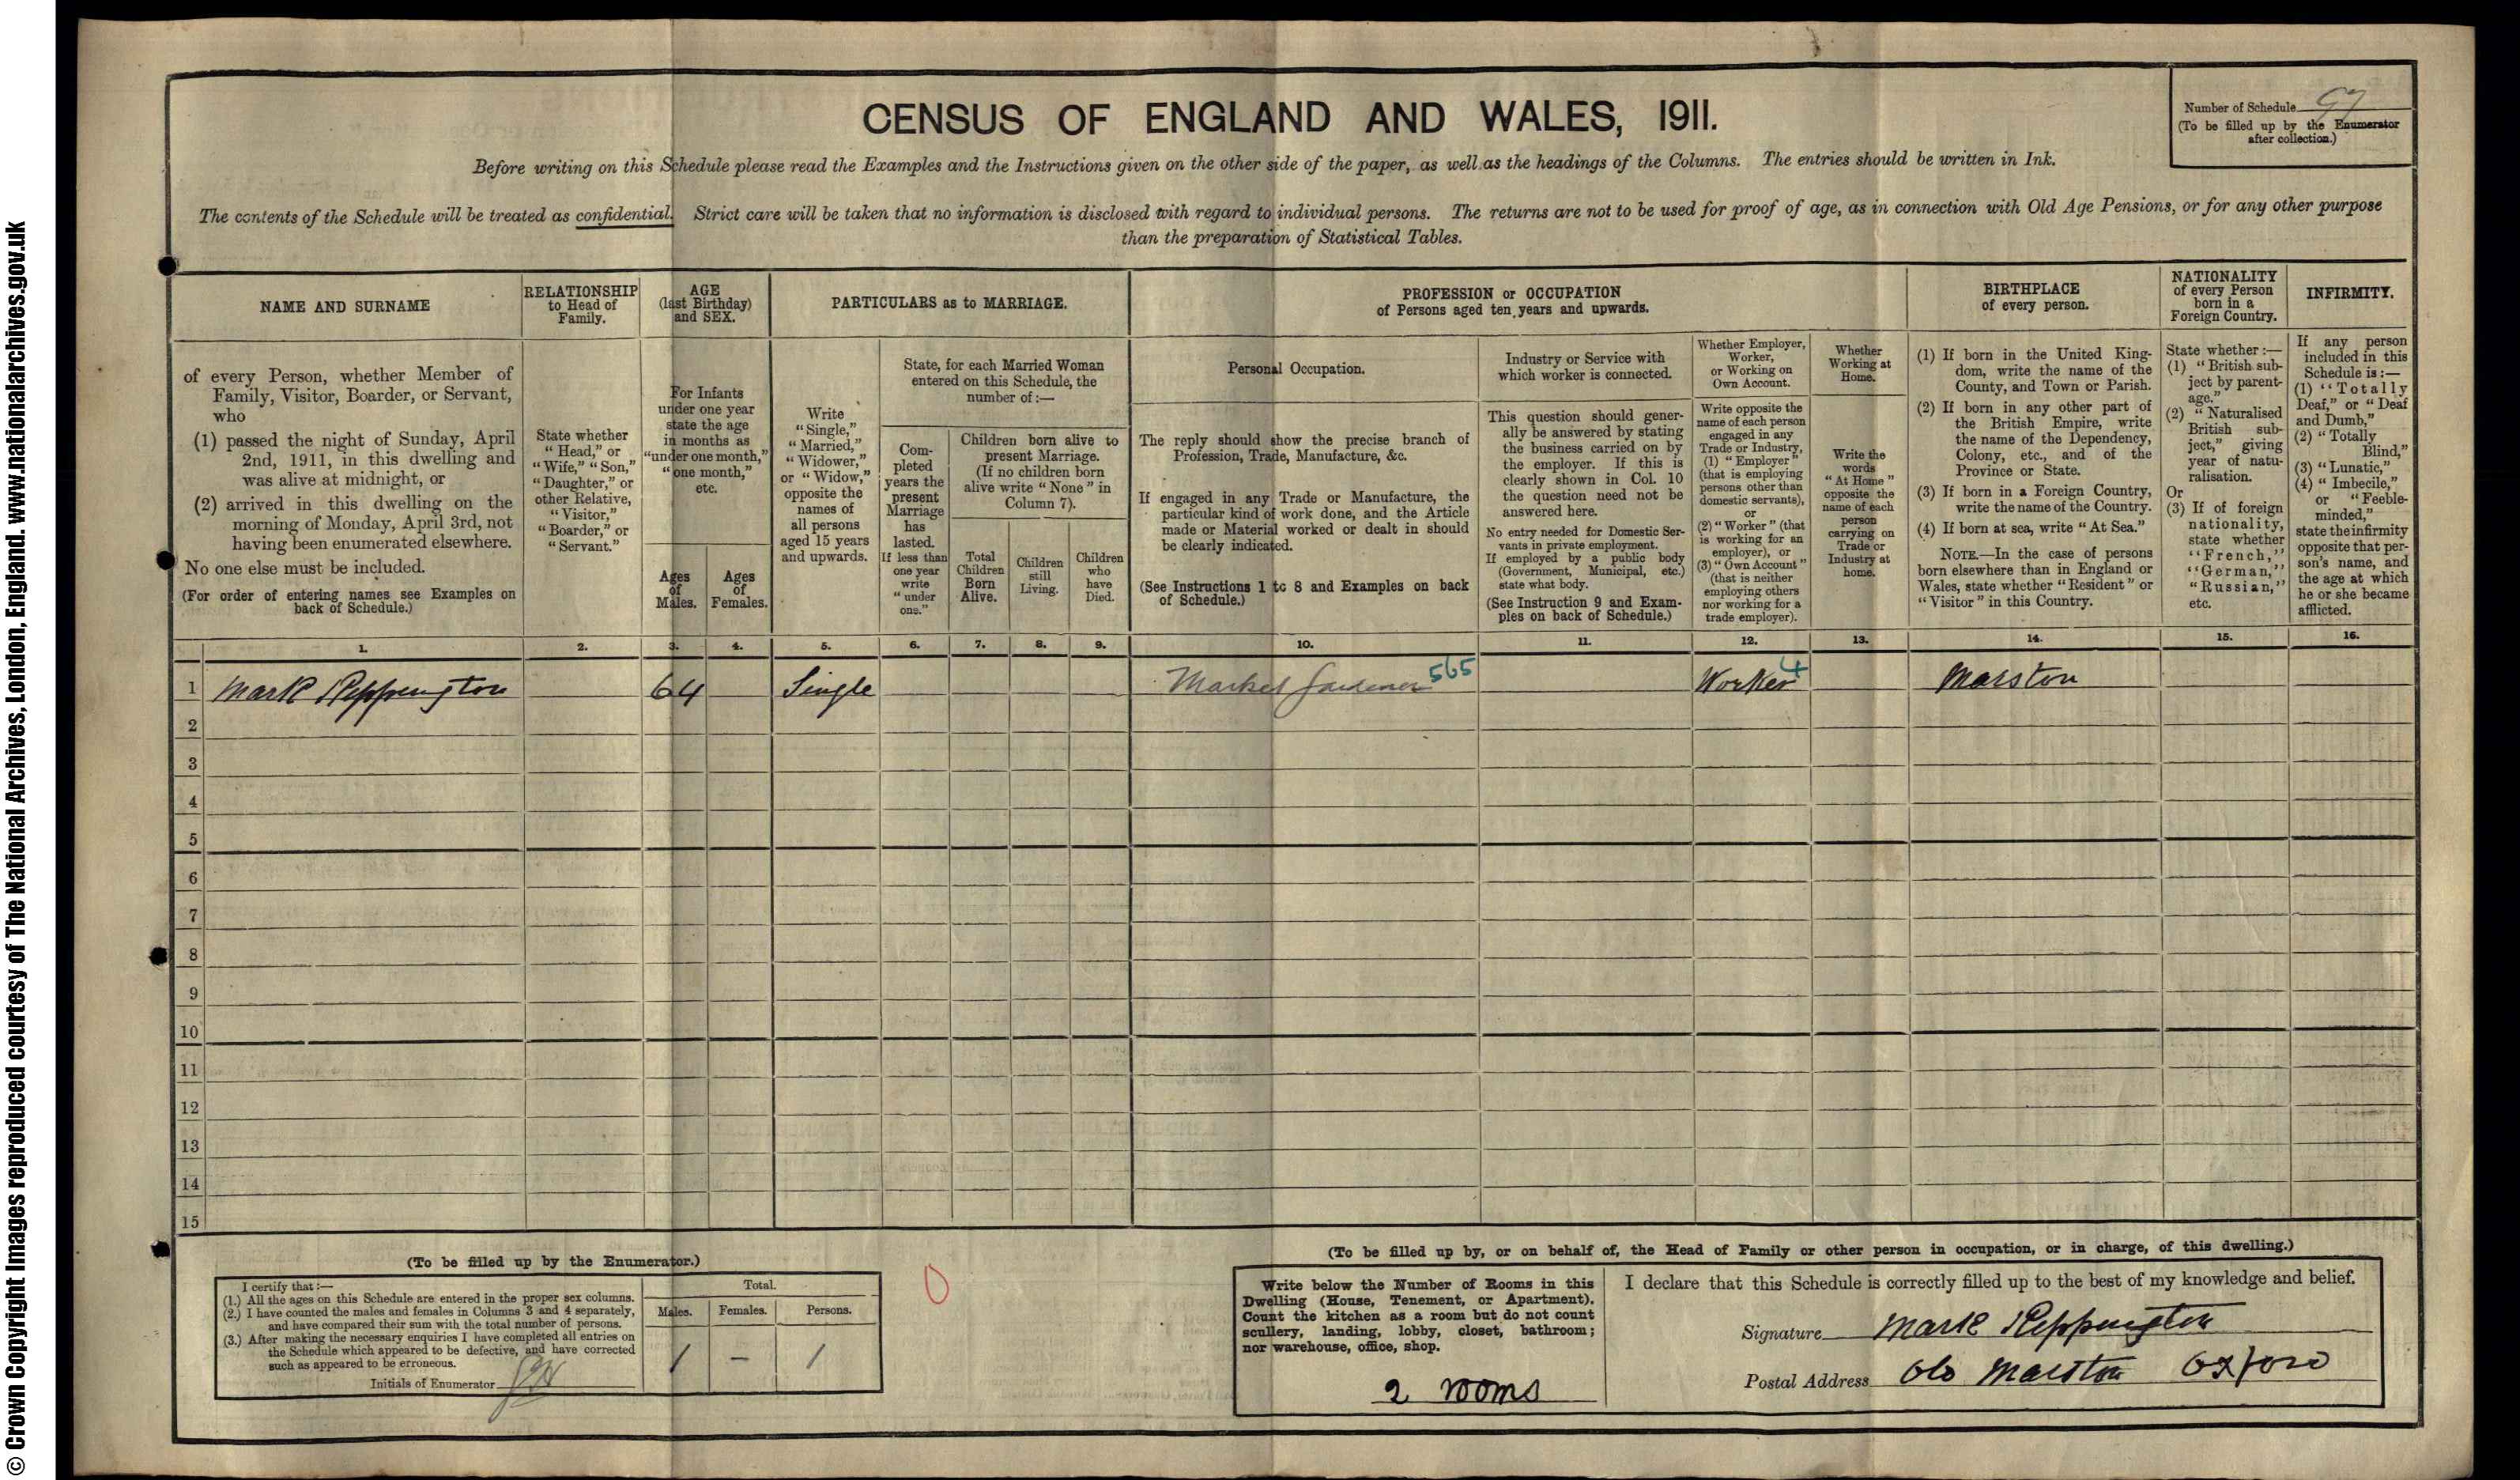 © Crown Copyright Images reproduced courtesy of The National Archives, London, England. www.nationalarchives.gov.uk
CENSUS OF ENGLAND AND WALES, 1911.
Number of Schedule 97
(To be filled up by the Enumerator
after collection.)
Before writing on this Schedule please read the Examples and the Instructions given on the other side of the paper, as well as the headings of the Columns. The entries should be written in Ink.
The contents of the Schedule will be treated as confidential. Strict care will be taken that no information is disclosed with regard to individual persons. The returns are not to be used for proof of age, as in connection with Old Age Pensions, or for any other purpose
than the preparation of Statistical Tables.
NAME AND SURNAME
of every Person, whether Member of
Family, Visitor, Boarder, or Servant,
who
(1) passed the night of Sunday, April
2nd, 1911, in this dwelling and
was alive at midnight, or
(2) arrived in this dwelling on the
morning of Monday, April 3rd, not
having been enumerated elsewhere.
No one else must be included.
(For order of entering names see Examples on
back of Schedule.)
RELATIONSHIP
to Head of
Family.
State whether
"Head," or
"Wife," "Son,"
"Daughter," or
other Relative,
"Visitor,"
"Boarder," or
"Servant."
AGE
(last Birthday)
and SEX.
For Infants
under one year
state the age
in months as
"under one month,"
"one month,"
etc.
Ages
of
Males.
Ages
of
Females.
PARTICULARS as to MARRIAGE.
Write
"Single,"
"Married,"
"Widower,"
or "Widow,"
opposite the
names of
all persons
aged 15 years
and upwards.
State, for each Married Woman
entered on this Schedule, the
number of:—
Com-
pleted
years the
present
Marriage
has
lasted.
If less than
one year
write
"under
one."
Children born alive to
present Marriage.
(If no children born
alive write "None" in
Column 7).
Total
Children
Born
Alive.
Children
still
Living.
Children
who
have
Died.
PROFESSION or OCCUPATION
of Persons aged ten years and upwards.
Personal Occupation.
The reply should show the precise branch of
Profession, Trade, Manufacture, &c.
If engaged in any Trade or Manufacture, the
particular kind of work done, and the Article
made or Material worked or dealt in should
be clearly indicated.
(See Instructions 1 to 8 and Examples on back
of Schedule.)
Industry or Service with
which worker is connected.
This question should gener-
ally be answered by stating
the business carried on by
the employer. If this is
clearly shown in Col. 10
the question need not be
answered here.
No entry needed for Domestic Ser-
vants in private employment.
If employed by a public body
(Government, Municipal, etc.)
state what body.
(See Instruction 9 and Exam-
ples on back of Schedule.)
Whether Employer,
Worker,
or Working on
Own Account.
Write opposite the
name of each person
engaged in any
Trade or Industry,
(1) "Employer"
(that is employing
persons other than
domestic servants),
or
(2) "Worker" (that
is working for an
employer), or
(3) "Own Account"
(that is neither
employing others
nor working for a
trade employer).
Whether
Working at
Home.
Write the
words
"At Home"
opposite the
name of each
person
carrying on
Trade or
Industry at
home.
BIRTHPLACE
of every person.
(1) If born in the United King-
dom, write the name of the
County, and Town or Parish.
(2) If born in any other part of
the British Empire, write
the name of the Dependency,
Colony, etc., and of the
Province or State.
(3) If born in a Foreign Country,
write the name of the Country.
(4) If born at sea, write "At Sea."
NOTE.—In the case of persons
born elsewhere than in England or
Wales, state whether "Resident" or
"Visitor" in this Country.
NATIONALITY
of every Person
born in a
Foreign Country.
State whether:—
(1) "British sub-
ject by parent-
age."
(2) "Naturalised
British sub-
ject," giving
year of natu-
ralisation.
Or
(3) If of foreign
nationality,
state whether
"French,"
"German,"
"Russian,"
etc.
INFIRMITY.
If any person
included in this
Schedule is:—
(1) "Totally
Deaf," or "Deaf
and Dumb,"
(2) "Totally
Blind,"
(3) "Lunatic,"
(4) "Imbecile,"
or "Feeble-
minded,"
state the infirmity
opposite that per-
son's name, and
the age at which
he or she became
afflicted.
1. 2. 3. 4. 5. 6. 7. 8. 9. 10. 11. 12. 13. 14. 15. 16.
1 Mark Peppington 64 Single Market Gardener 565 Worker 4 Marston
2
3
4
5
6
7
8
9
10
11
12
13
14
15
(To be filled up by the Enumerator.)
I certify that:—
(1.) All the ages on this Schedule are entered in the proper sex columns.
(2.) I have counted the males and females in Columns 3 and 4 separately,
and have compared their sum with the total number of persons.
(3.) After making the necessary enquiries I have completed all entries on
the Schedule which appeared to be defective, and have corrected
such as appeared to be erroneous.
Initials of Enumerator
Total.
Males. Females. Persons.
1 — 1
0
(To be filled up by, or on behalf of, the Head of Family or other person in occupation, or in charge, of this dwelling.)
Write below the Number of Rooms in this
Dwelling (House, Tenement, or Apartment).
Count the kitchen as a room but do not count
scullery, landing, lobby, closet, bathroom;
nor warehouse, office, shop.
2 rooms
I declare that this Schedule is correctly filled up to the best of my knowledge and belief.
Signature Mark Peppington
Postal Address Old Marston Oxford